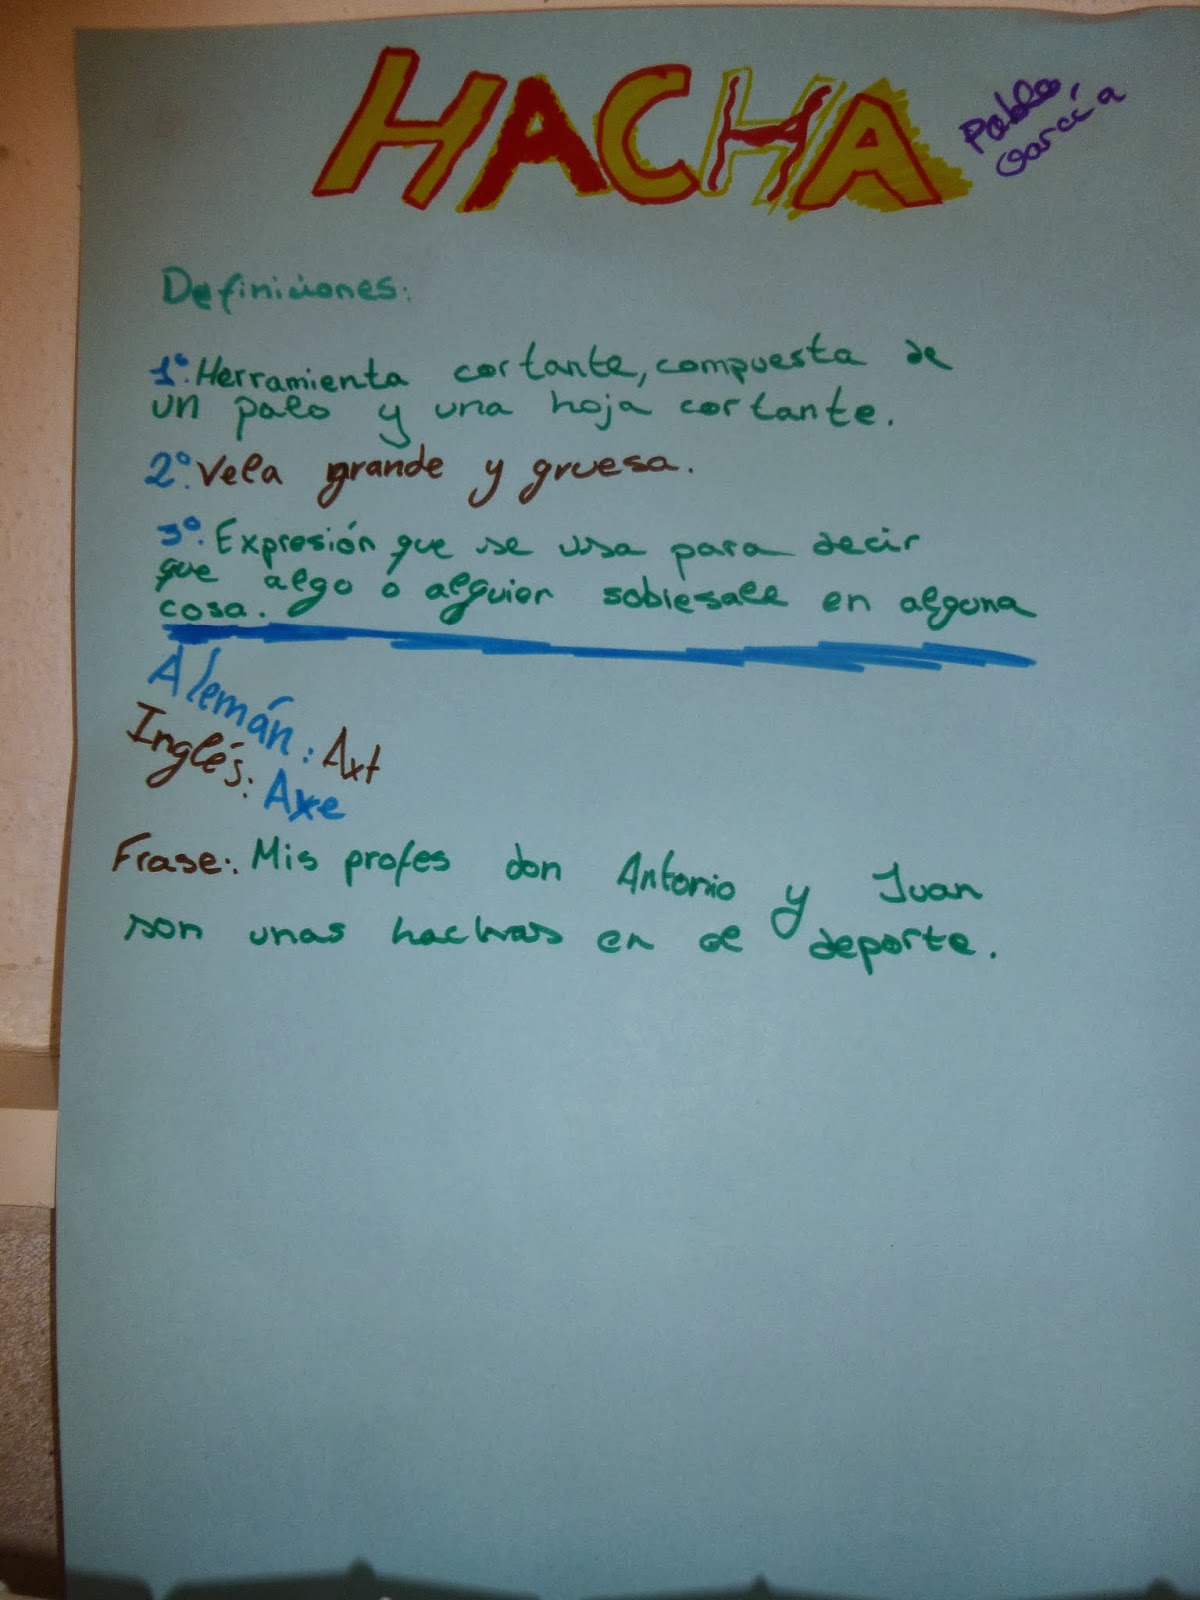 HACHA
Pablo
García
Definiciones:
1º. Herramienta cortante, compuesta de
un palo y una hoja cortante.
2º. Vela grande y gruesa.
3º. Expresión que se usa para decir
que algo o alguien sobresale en alguna
cosa.
Alemán: Axt
Inglés: Axe
Frase: Mis profes don Antonio y Juan
son unas hachas en el deporte.